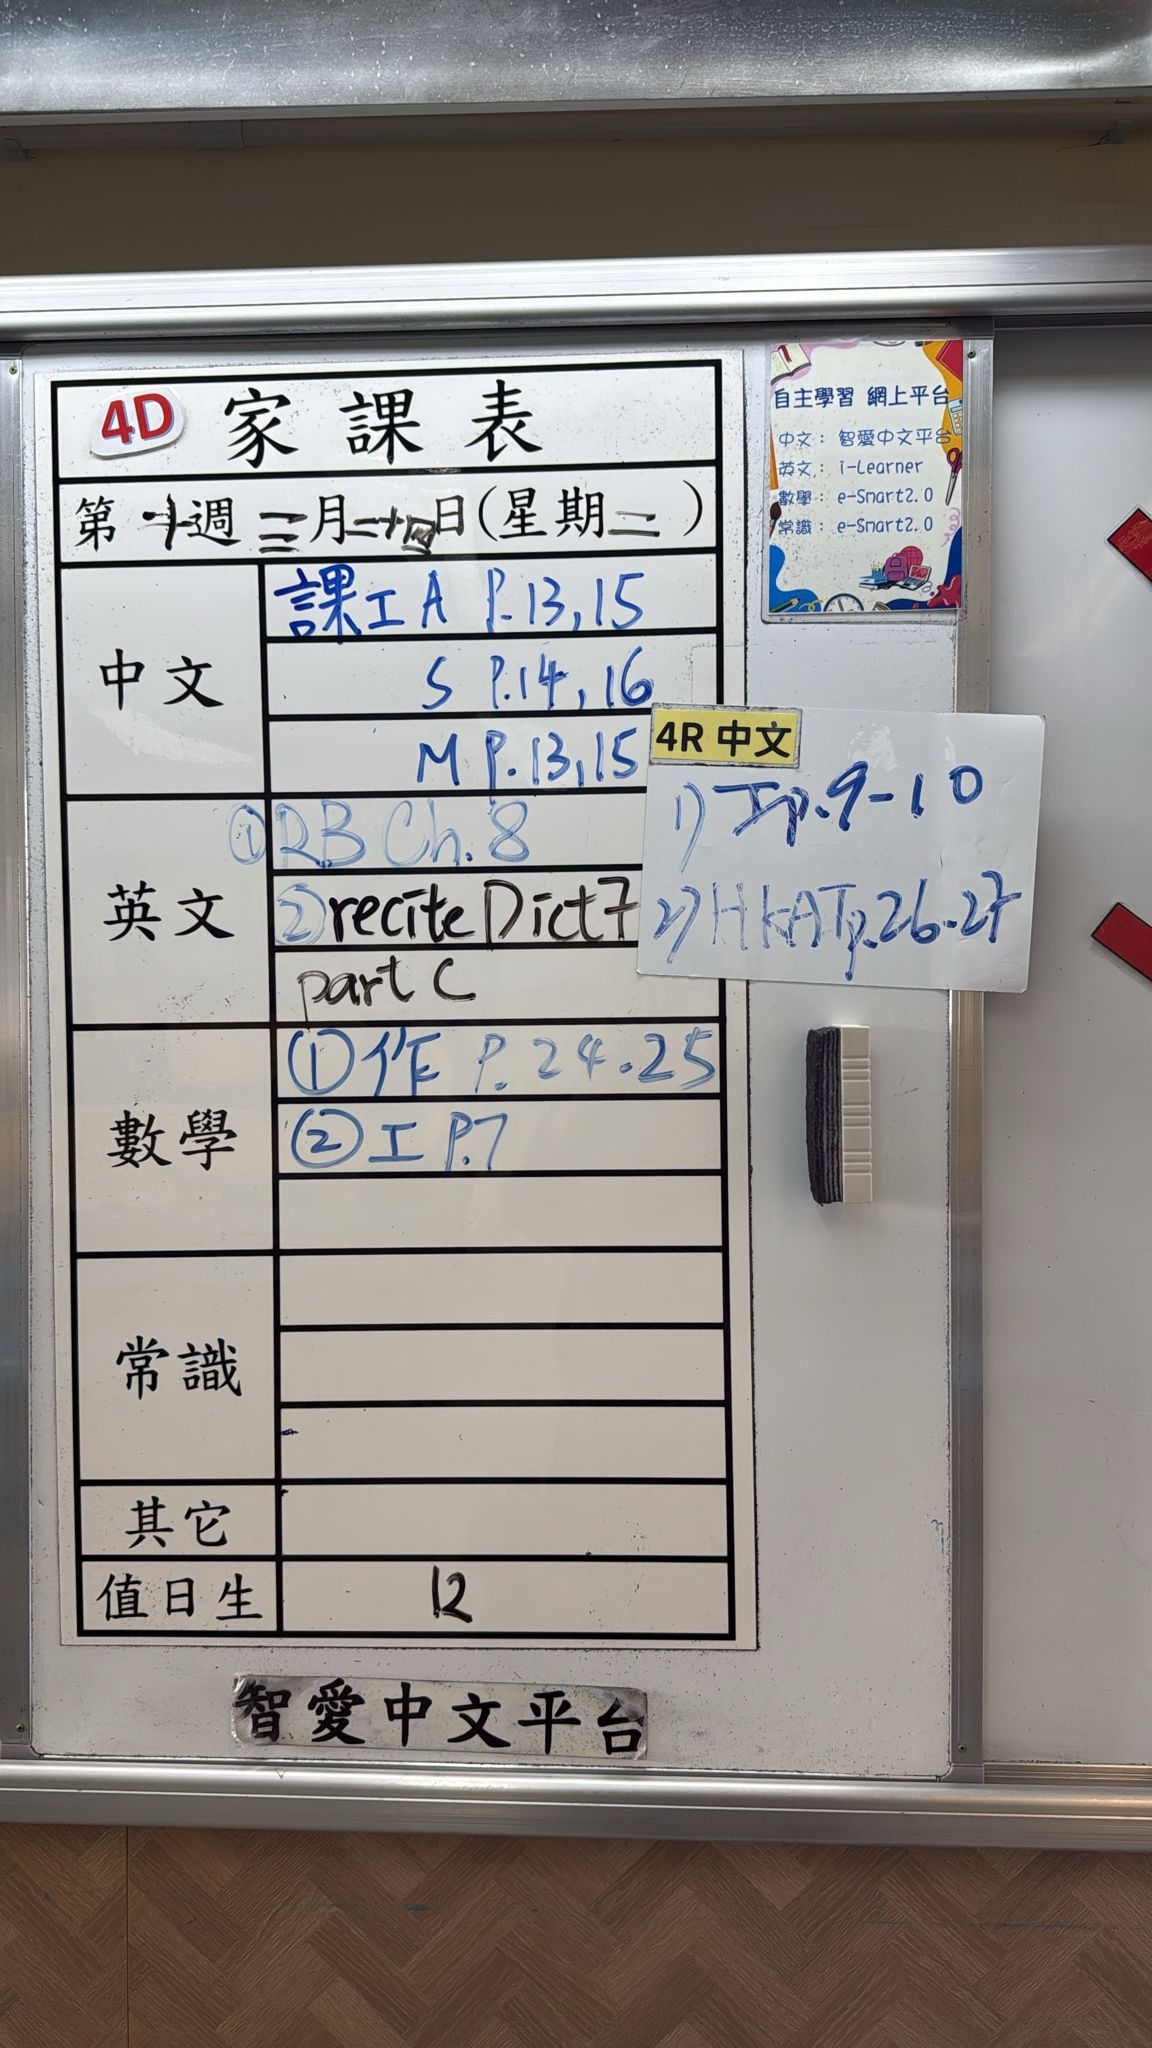 4D 家課表
第十週 三月二十四日(星期二)
中文
課工A P.13,15
S P.14,16
M P.13,15
英文
① RB Ch.8
② recite Dict 7
part C
數學
① 作 P.24.25
② 工 P.7
常識
其它
值日生 12
智愛中文平台
自主學習 網上平台
中文: 智愛中文平台
英文: i-Learner
數學: e-Smart2.0
常識: e-Smart2.0
4R 中文
1) 工p.9-10
2) HKAT p.26-27